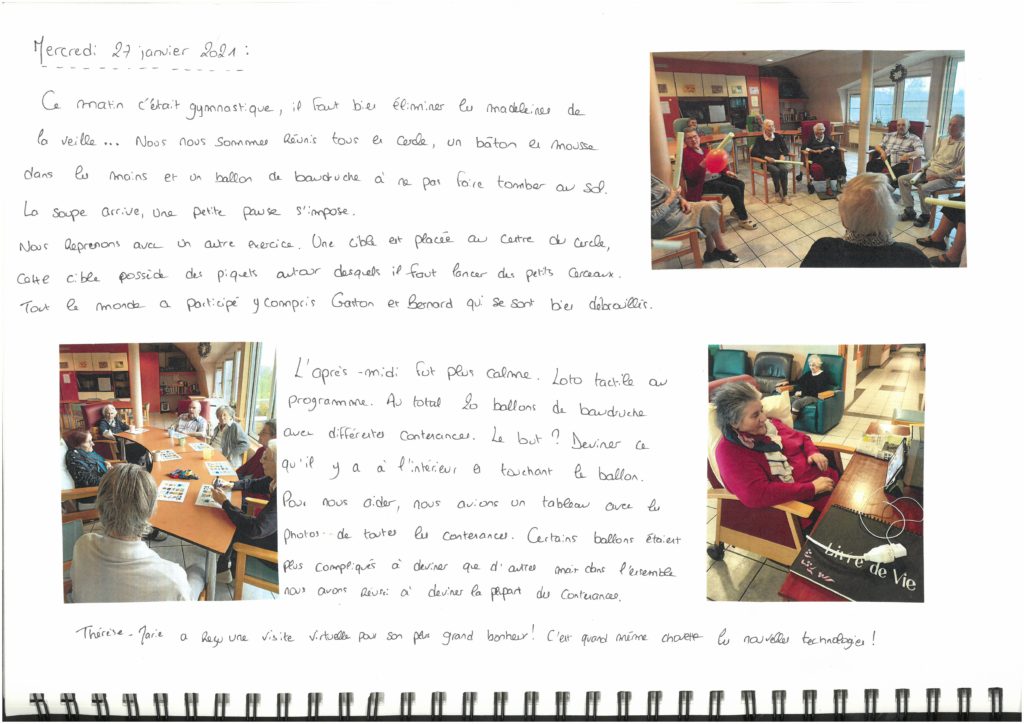 Mercredi 27 janvier 2021 :
Ce matin c'était gymnastique, il faut bien éliminer les madeleines de
la veille... Nous nous sommes réunis tous en cercle, un bâton en mousse
dans les mains et un ballon de baudruche à ne pas faire tomber au sol.
La soupe arrive, une petite pause s'impose.
Nous reprenons avec un autre exercice. Une cible est placée au centre du cercle,
cette cible possède des piquets autour desquels il faut lancer des petits cerceaux.
Tout le monde a participé y compris Gaston et Bernard qui se sont bien débrouillés.
L'après-midi fut plus calme. Loto tactile au
programme. Au total 20 ballons de baudruche
avec différentes contenances. Le but ? Deviner ce
qu'il y a à l'intérieur en touchant le ballon.
Pour nous aider, nous avions un tableau avec les
photos de toutes les contenances. Certains ballons étaient
plus compliqués à deviner que d'autres mais dans l'ensemble
nous avons réussi à deviner la plupart des contenances.
Livre de Vie
Thérèse-Marie a reçu une visite virtuelle pour son plus grand bonheur ! C'est quand même chouette les nouvelles technologies !